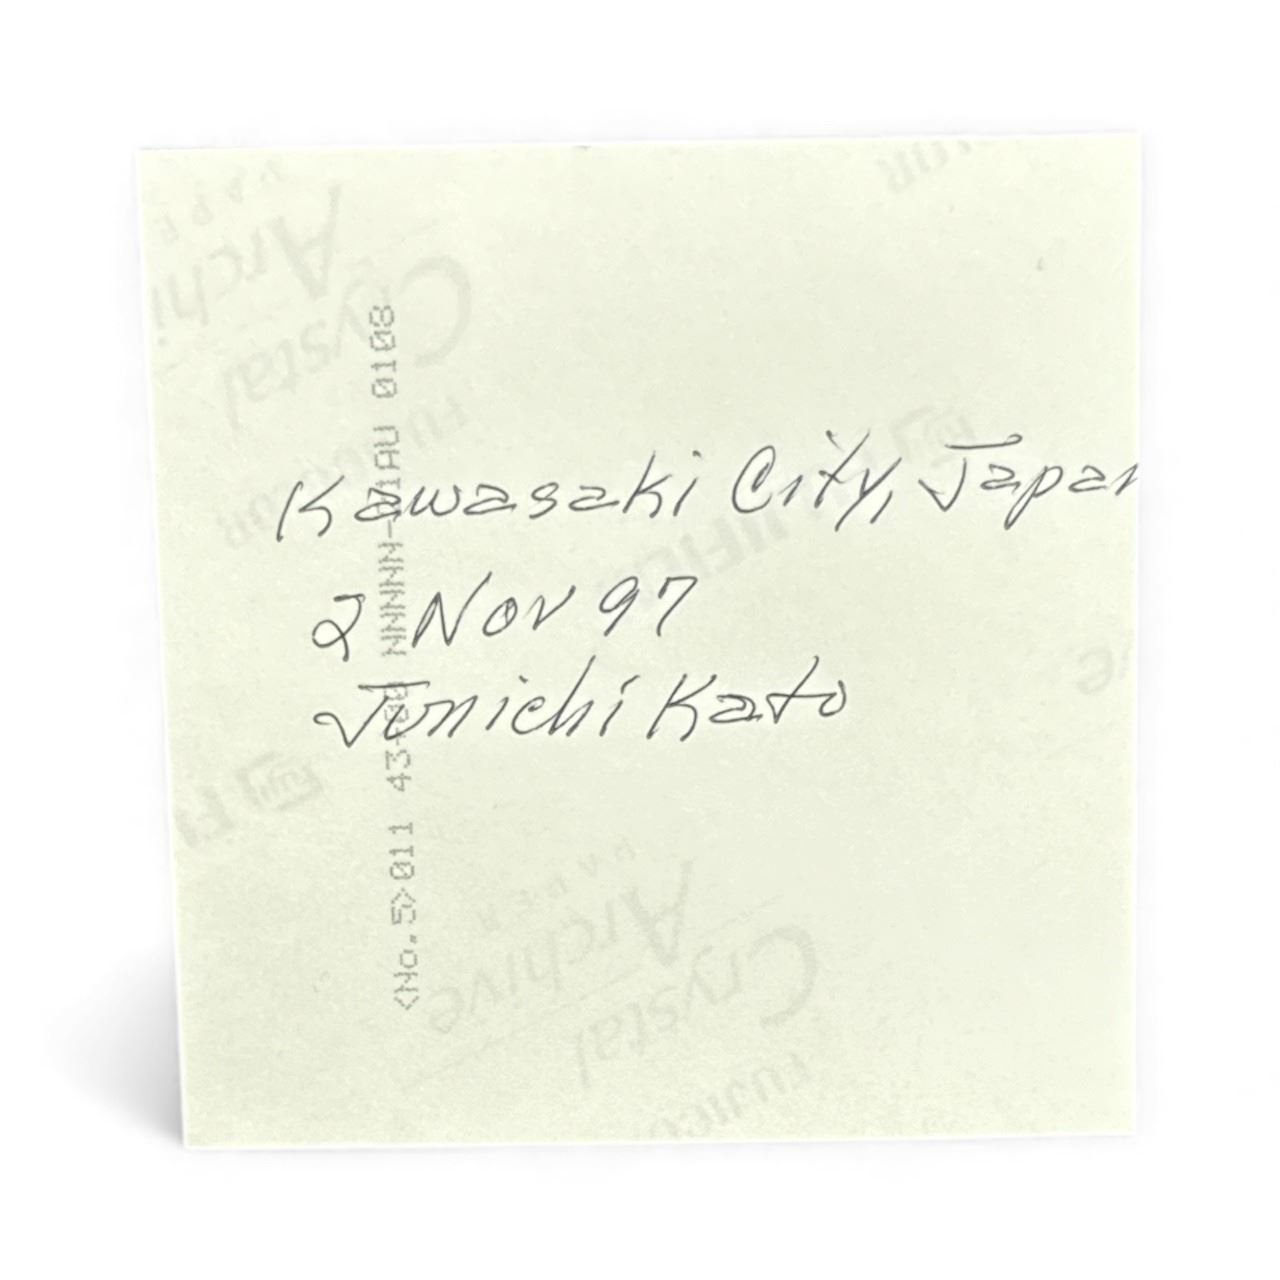 Kawasaki City, Japan
2 Nov 97
Junichi Kato
<No.5>011 43+00 NNNNN-01AU 0108
FUJICOLOR
Crystal
Archive
PAPER
FUJICOLOR
Crystal
Archive
PAPER